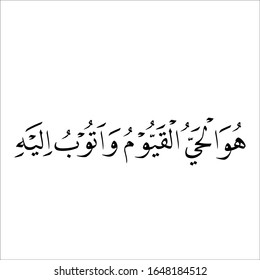 هُوَالْحَيُّ الْقَيُّوْمُ وَاَتُوْبُ اِلَيْهِ
shutterstock.com · 1648184512